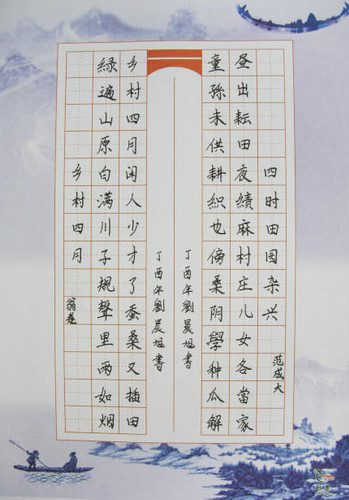 四时田园杂兴
范成大
昼出耘田夜績麻村庄儿女各當家
童孫未供耕織也傍桑阴學种瓜解
丁酉年劉晨旭書
丁酉年劉晨旭書
乡村四月闲人少才了蚕桑又插田
緑遍山原白满川子規聲里雨如烟
乡村四月
翁卷